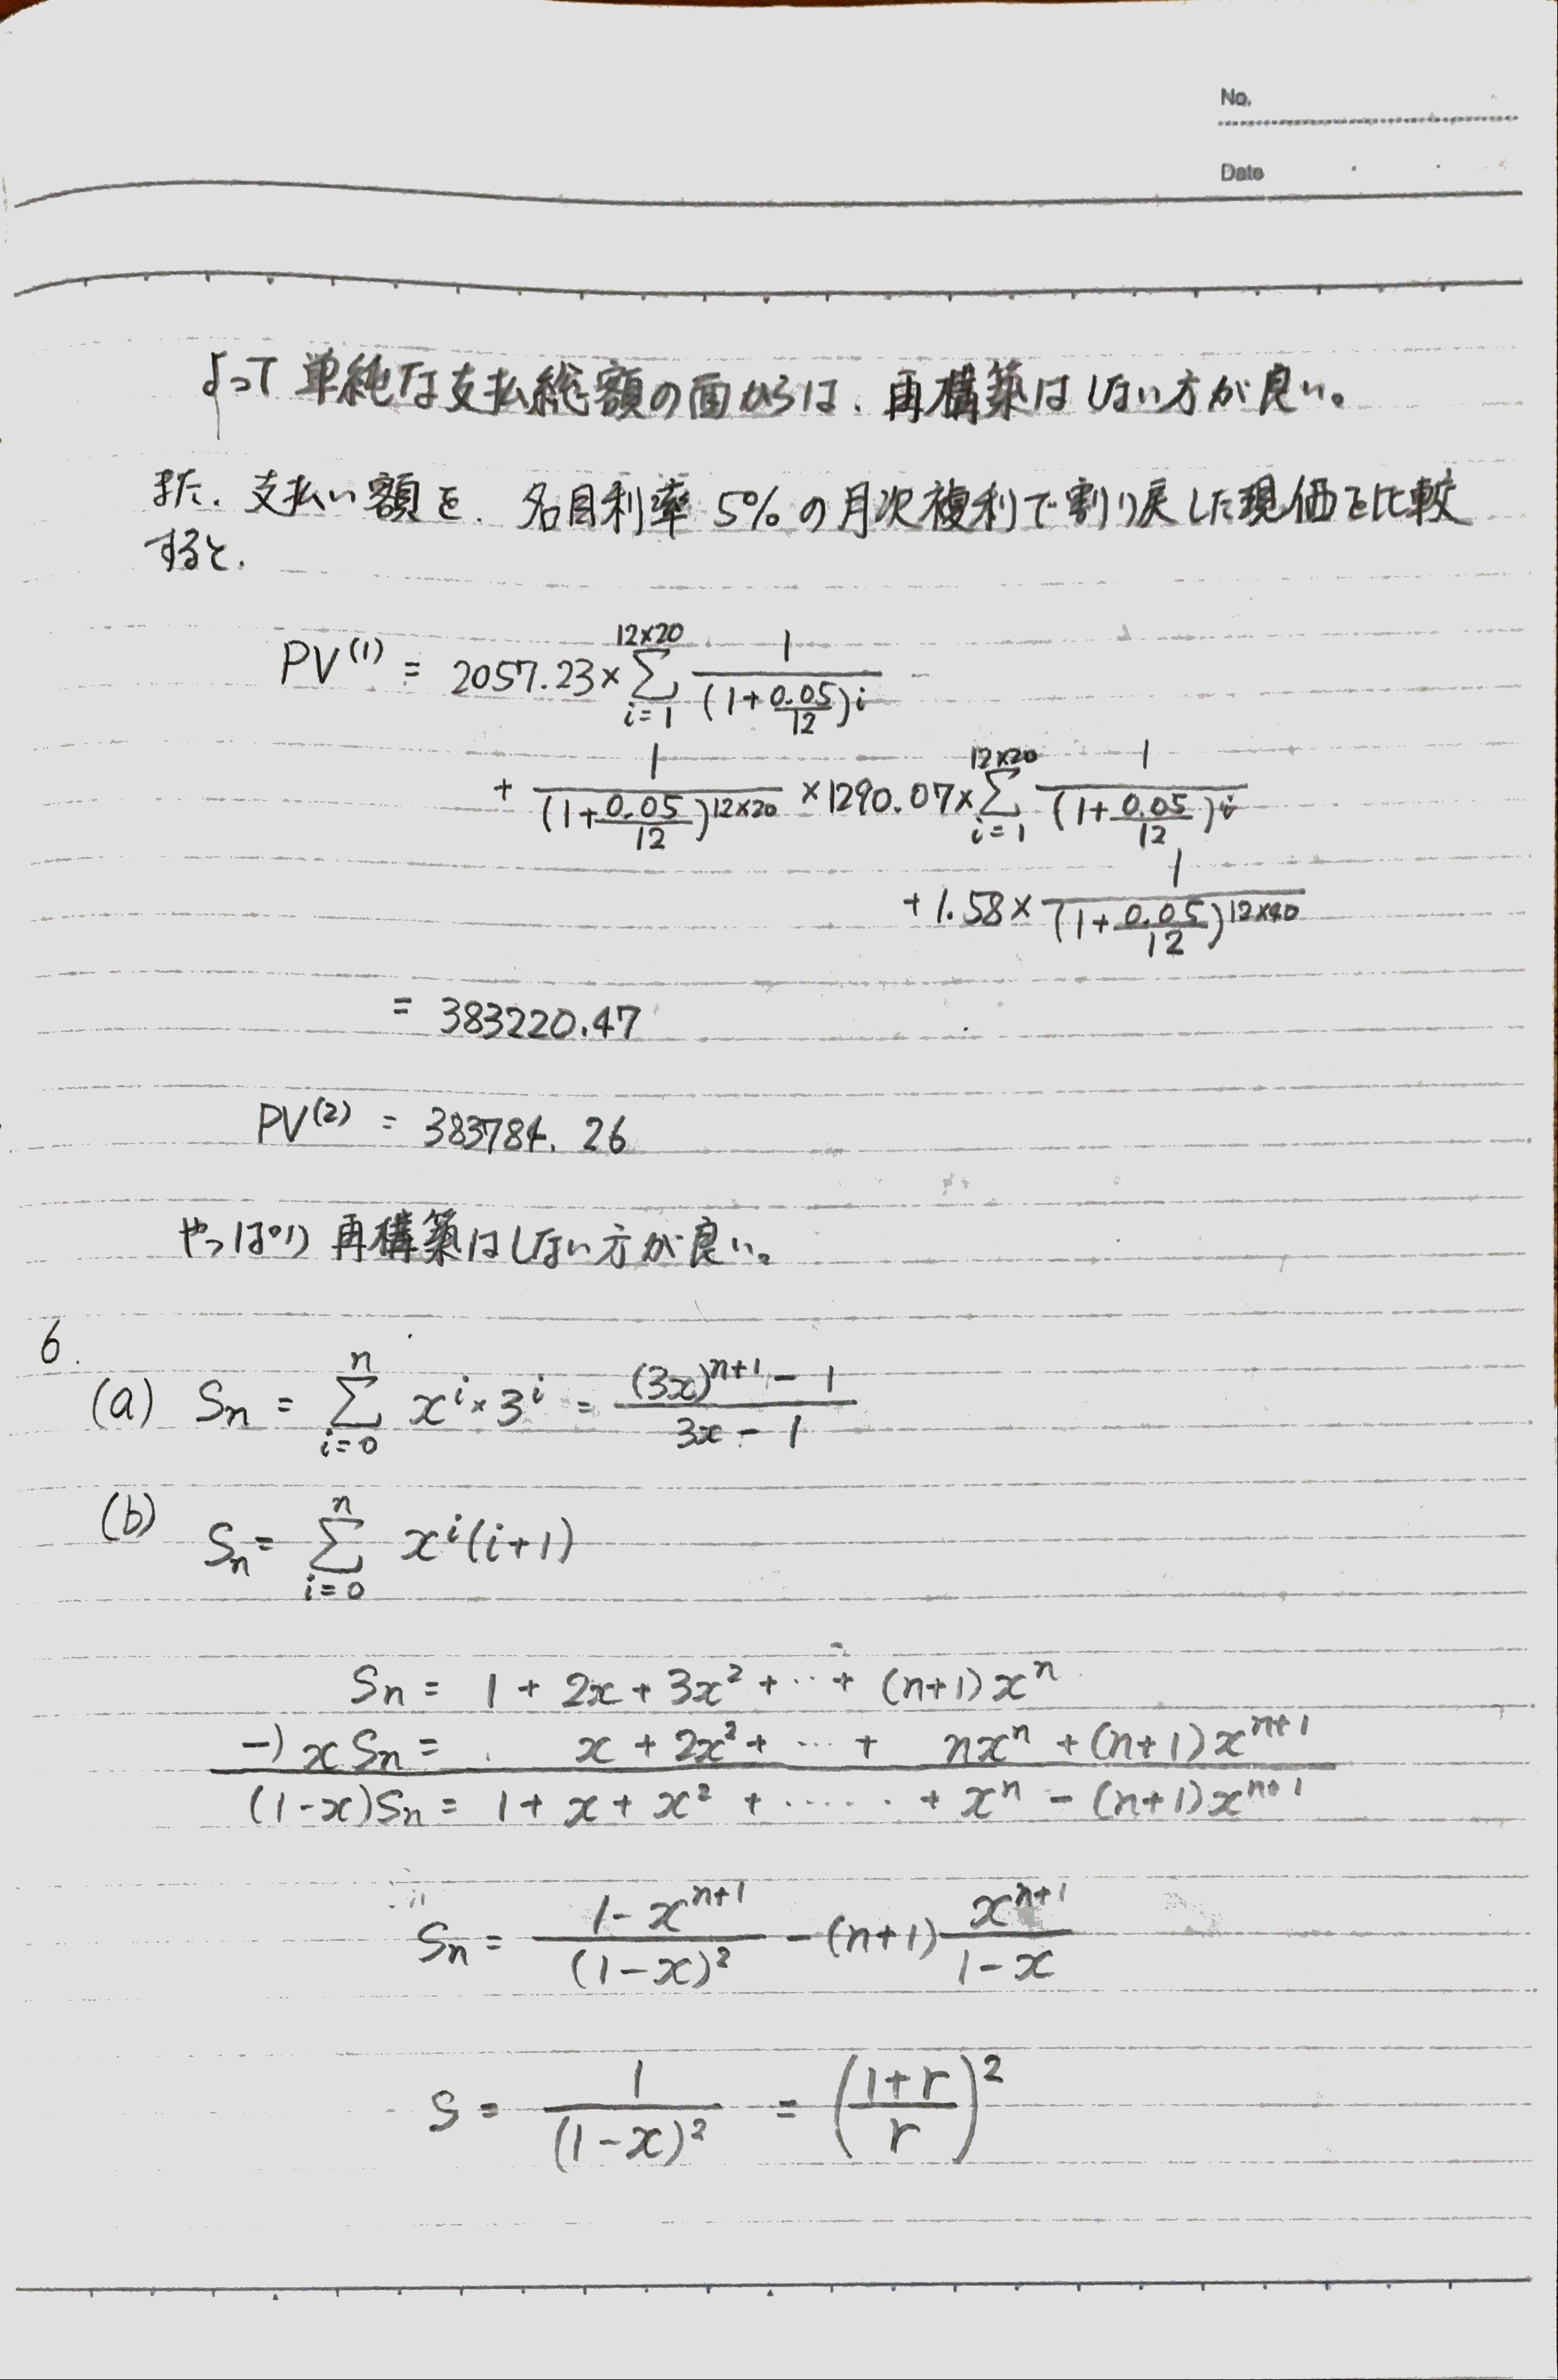 No.
Date
よって 単純な支払総額の面からは、再構築はしない方が良い。
また、支払い額を、名目利率 5%の月次複利で割り戻した現価を比較
すると、
PV^(1) = 2057.23 × Σ_{i=1}^{12×20} 1/(1+0.05/12)^i
+ 1/(1+0.05/12)^{12×20} × 1290.07 × Σ_{i=1}^{12×20} 1/(1+0.05/12)^i
+ 1.58 × 1/(1+0.05/12)^{12×40}
= 383220.47
PV^(2) = 383784.26
やっぱり 再構築はしない方が良い。
6.
(a) Sn = Σ_{i=0}^{n} x^i × 3^i = ((3x)^{n+1} - 1)/(3x - 1)
(b) Sn = Σ_{i=0}^{n} x^i (i+1)
Sn = 1 + 2x + 3x^2 + ... + (n+1)x^n
-) xSn = x + 2x^2 + ... + nx^n + (n+1)x^{n+1}
(1-x)Sn = 1 + x + x^2 + ...... + x^n - (n+1)x^{n+1}
Sn = (1-x^{n+1})/(1-x)^2 - (n+1) x^{n+1}/(1-x)
S = 1/(1-x)^2 = ((1+r)/r)^2